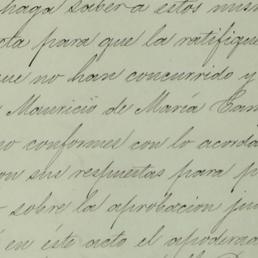 haga saber a estos mism
cta para que la ratifique
ue no han concurrido y
Mauricio de María Cam
no conformes con lo acorda
on sus respuestas para p
sobre la aprobacion ju
en éste acto el apodera